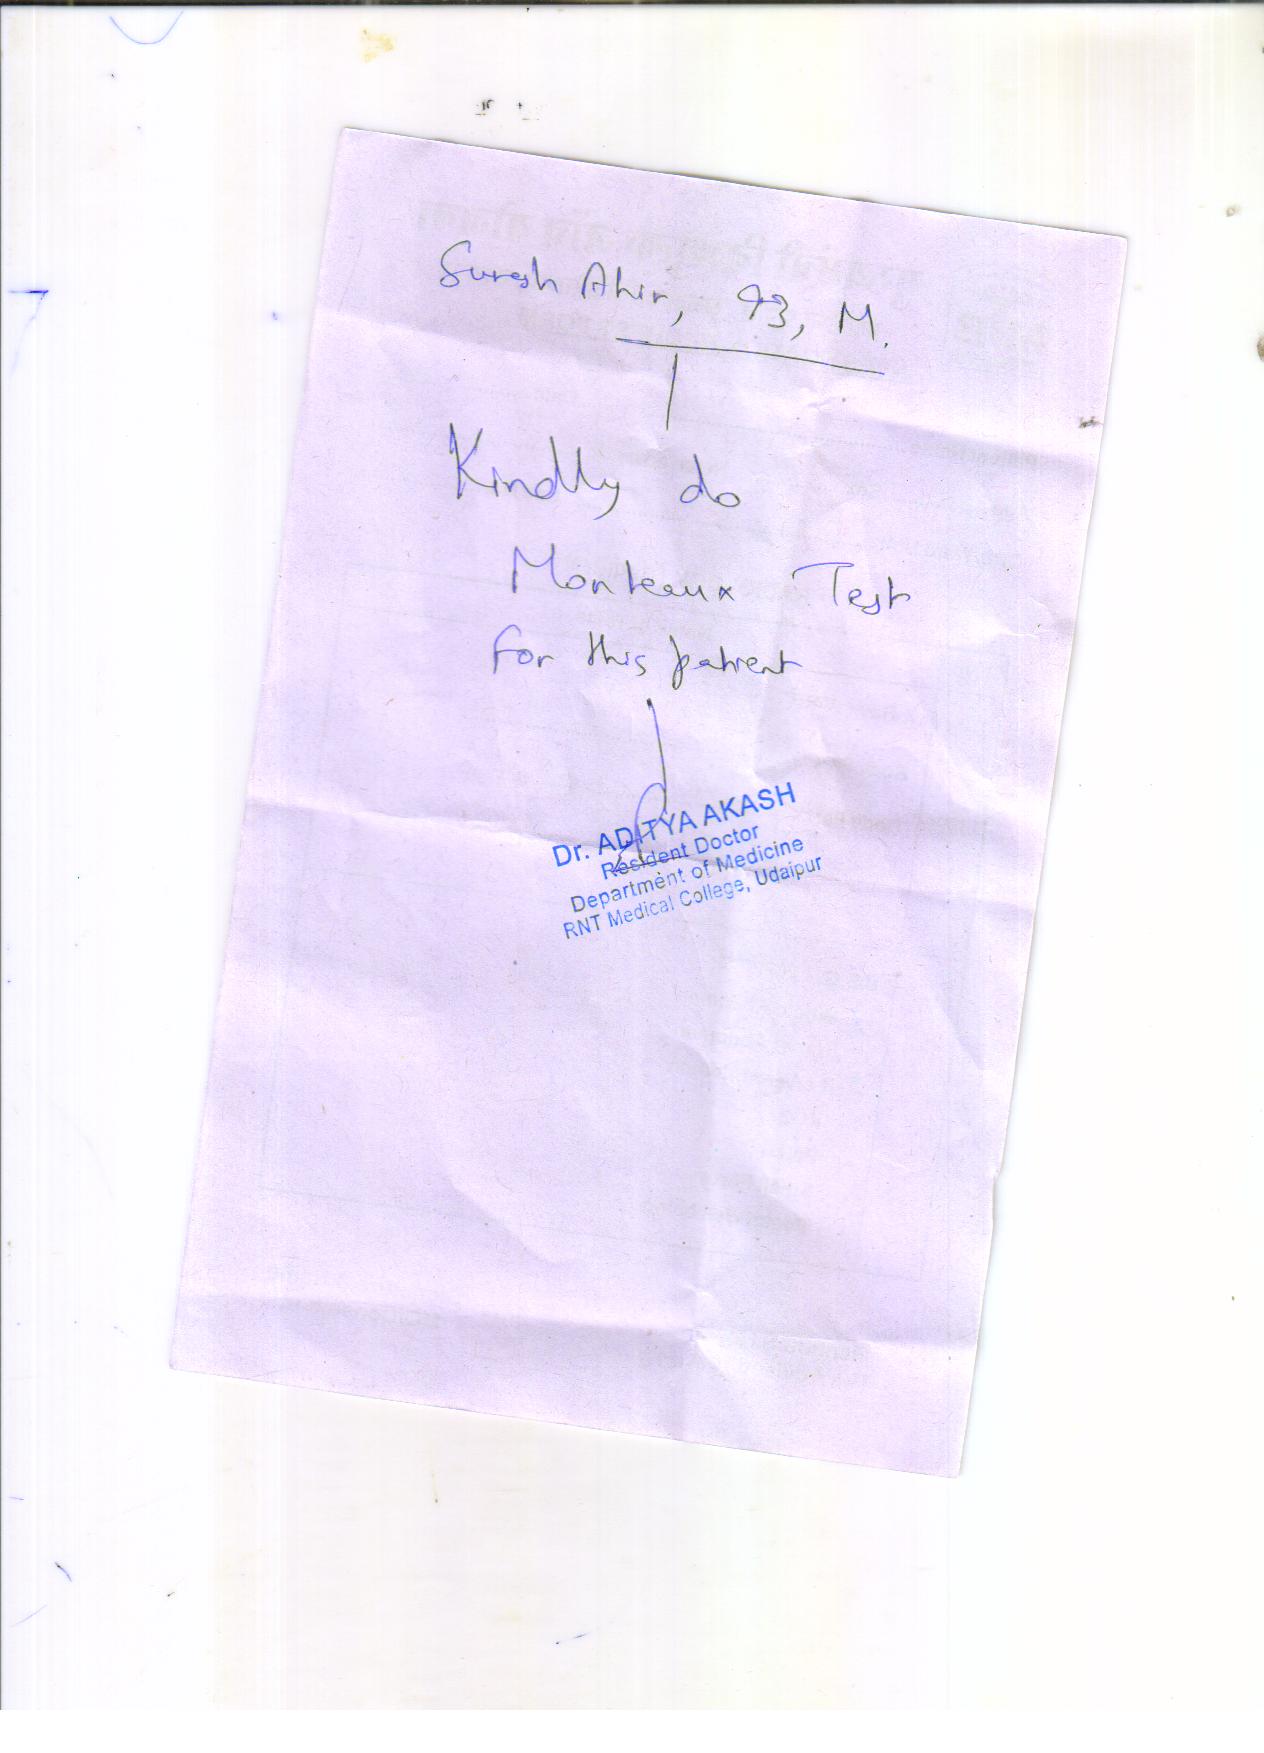 Suresh Ahir, 43, M.
Kindly do
Monteaux Test
for this patient
Dr. ADITYA AKASH
Resident Doctor
Department of Medicine
RNT Medical College, Udaipur